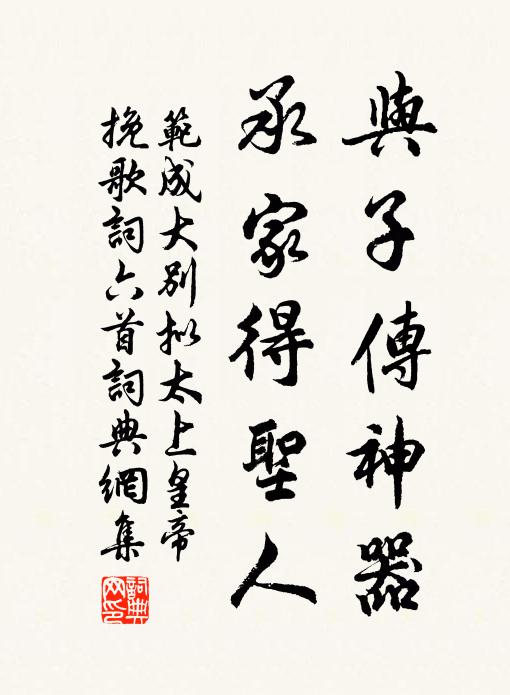 與子傳神器
承家得聖人
範成大別拟太上皇帝
挽歌詞六首詞典網集
詞典
网印